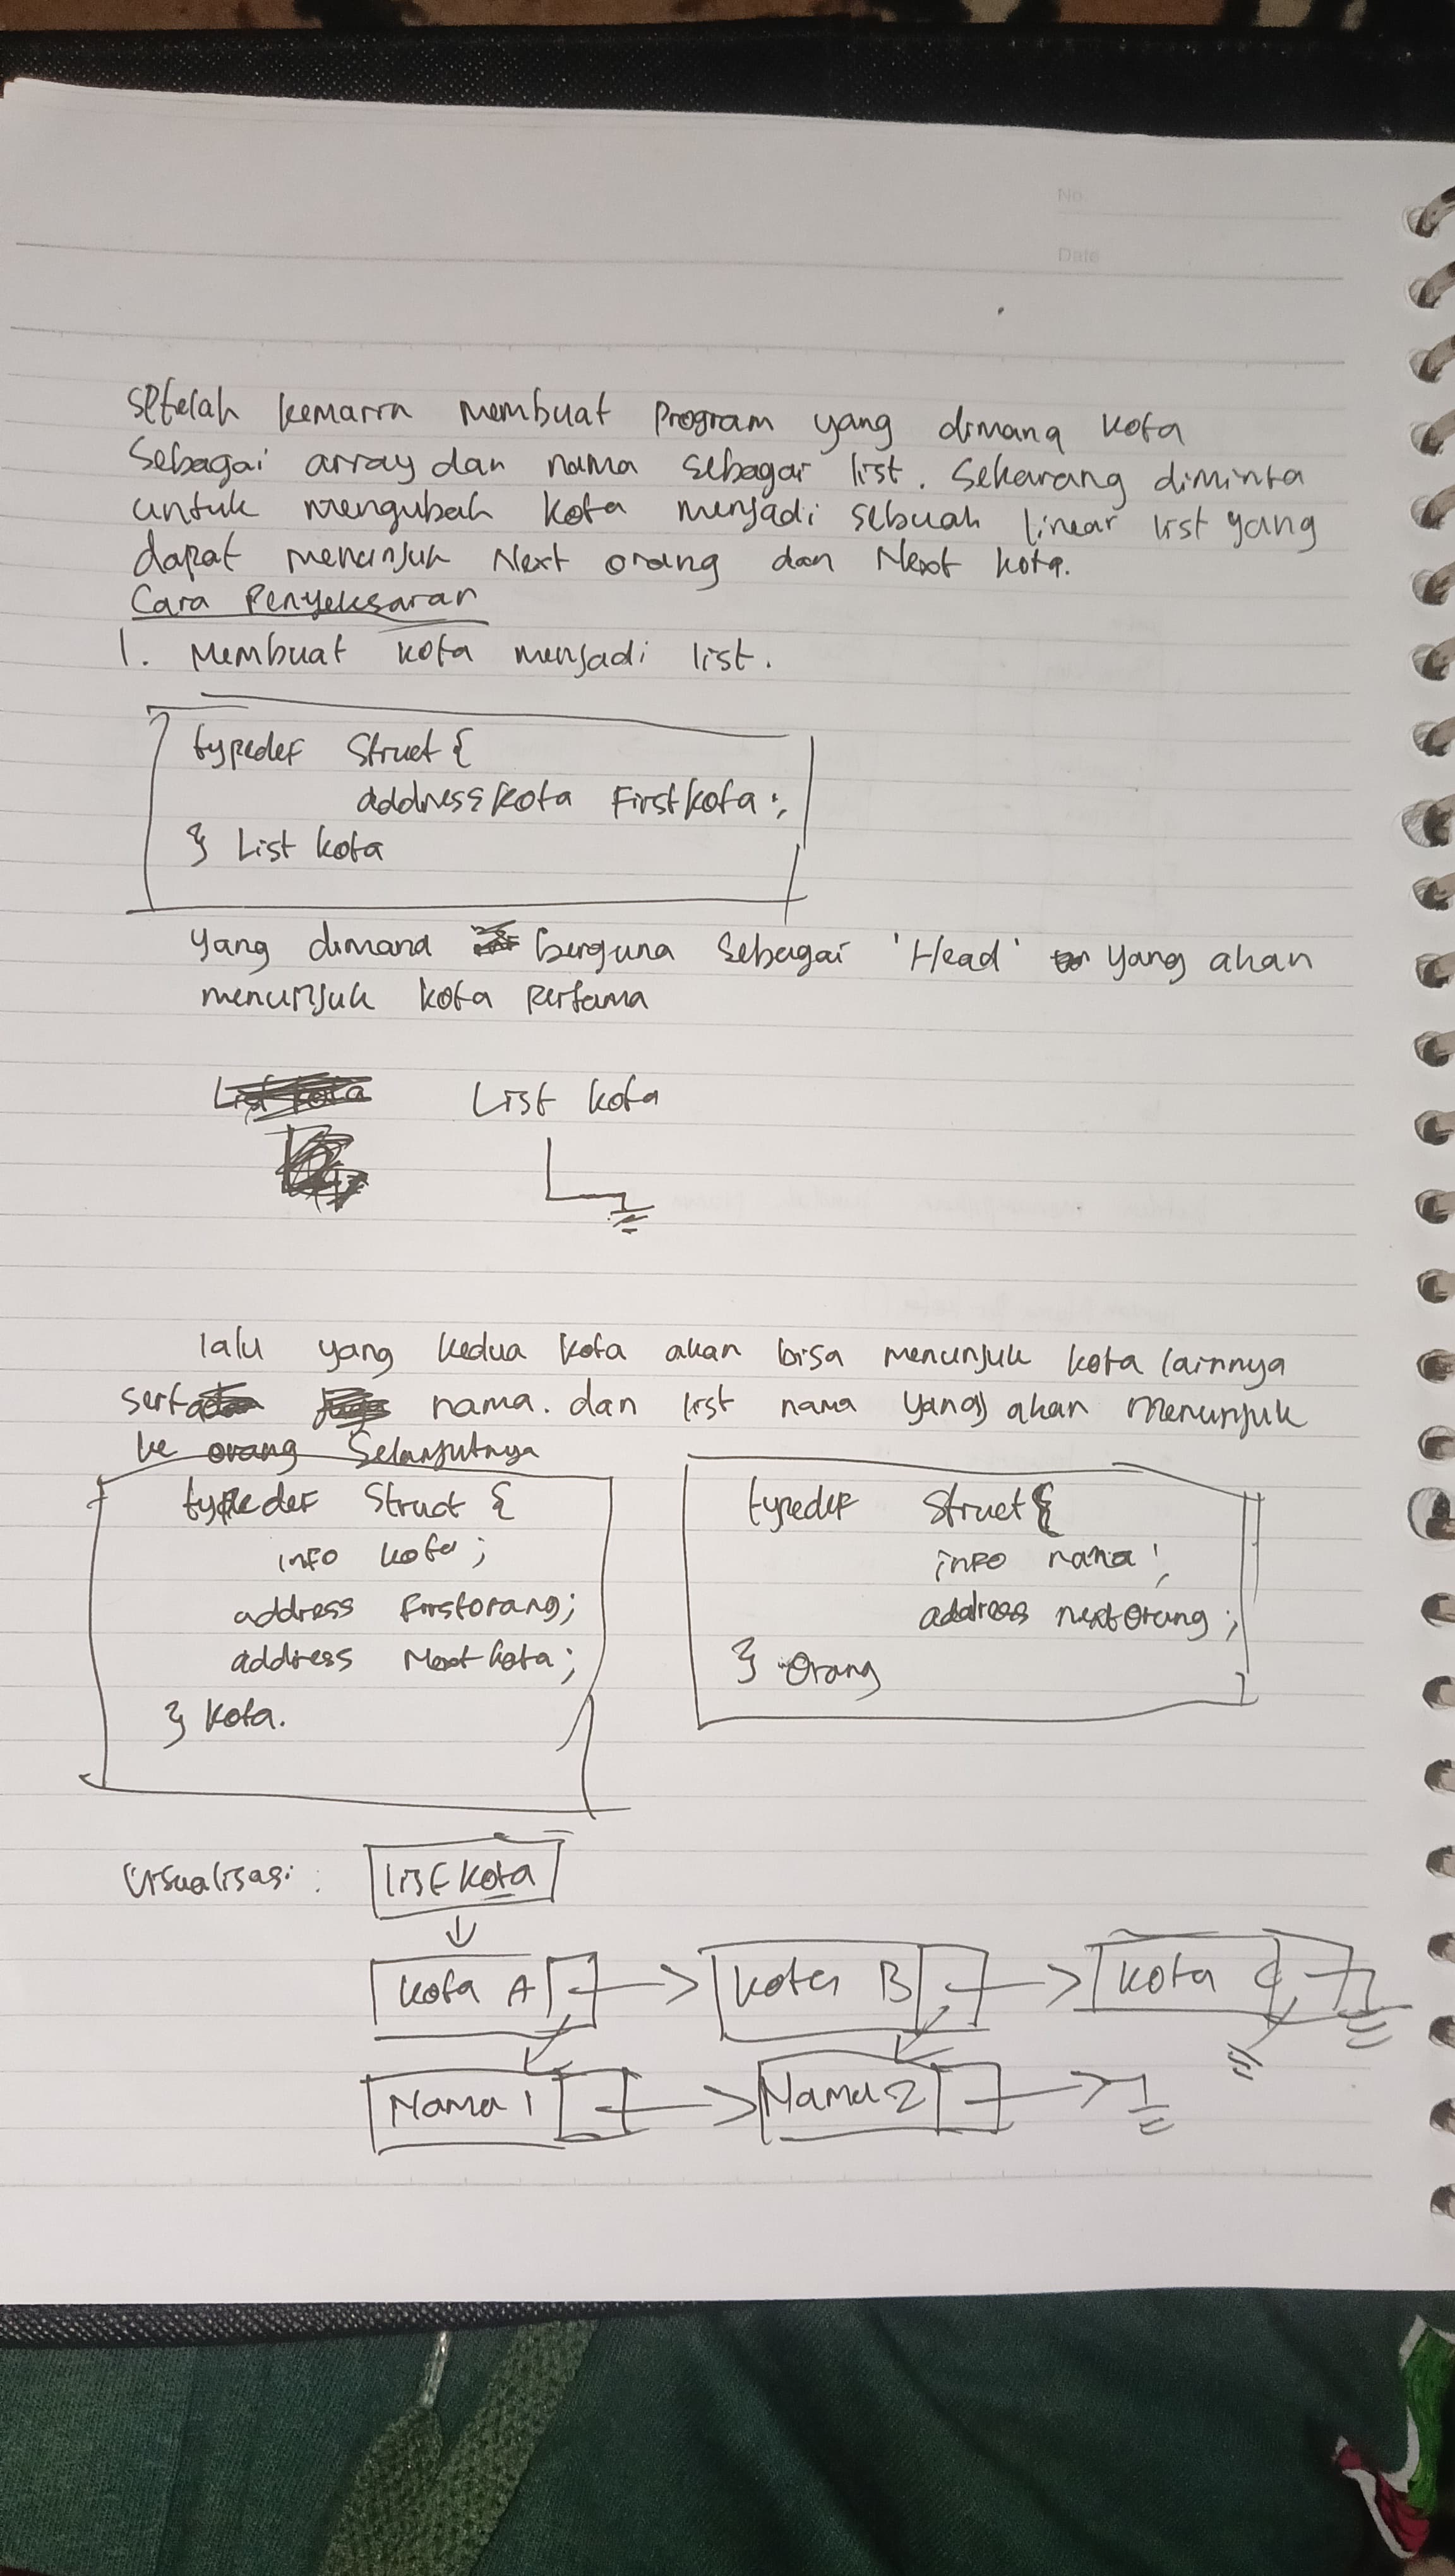 No
Date
Setelah kemarin membuat program yang dimana kota
Sebagai array dan nama sebagai list. Sekarang diminta
untuk mengubah kota menjadi sebuah linear list yang
dapat menunjuk Next orang dan Next kota.
Cara Penyelesaian
1. Membuat kota menjadi list.
typedef Struct {
address kota Firstkota;
} List kota
yang dimana berguna sebagai 'Head' yang akan
menunjuk kota pertama
List kota
List kota
lalu yang kedua kota akan bisa menunjuk kota lainnya
serta nama. dan list nama yang akan menunjuk
ke orang Selanjutnya
typedef Struct {
info kota;
address firstorang;
address Nextkota;
} Kota.
typedef Struct {
info nama;
address nextOrang;
} Orang
Visualisasi:
list kota
Kota A
Kota B
Kota C
Nama 1
Nama 2